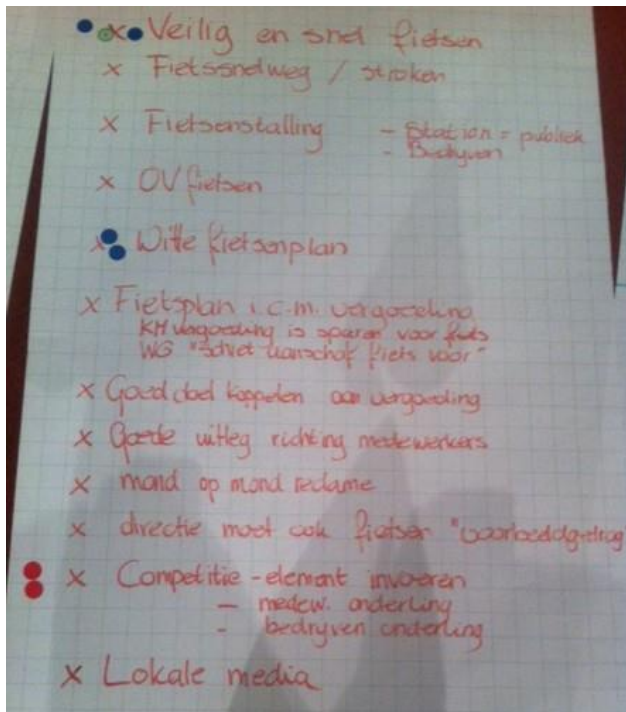 x Veilig en snel fietsen
x Fietssnelweg / stroken
x Fietsenstalling - Station = publiek
- Bedrijven
x OV fietsen
x Witte fietsenplan
x Fietsplan i.c.m. vergoeding
KM vergoeding is sparen voor fiets
WG "Schiet aanschaf fiets voor"
x Goed doel koppelen aan vergoeding
x Goede uitleg richting medewerkers
x mond op mond reclame
x directie moet ook fietsen "voorbeeldgedrag"
x Competitie-element invoeren
- medew. onderling
- bedrijven onderling
x Lokale media